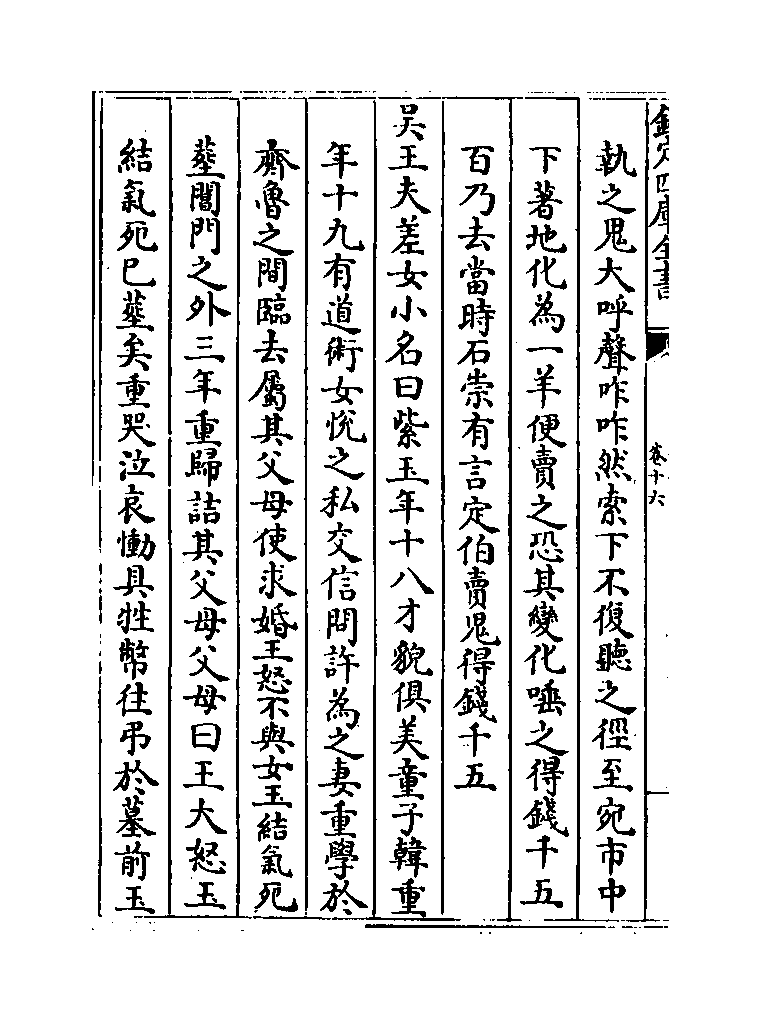 欽定四庫全書
卷十六
執之鬼大呼聲咋咋然索下不復聽之徑至宛市中
下著地化為一羊便賣之恐其變化唾之得錢千五
百乃去當時石崇有言定伯賣鬼得錢千五
吳王夫差女小名曰紫玉年十八才貌俱美童子韓重
年十九有道術女悅之私交信問許為之妻重學於
齊魯之間臨去屬其父母使求婚王怒不與女玉結氣死
塟閶門之外三年重歸詰其父母父母曰王大怒玉
結氣死已塟矣重哭泣哀慟具牲幣往弔於墓前玉